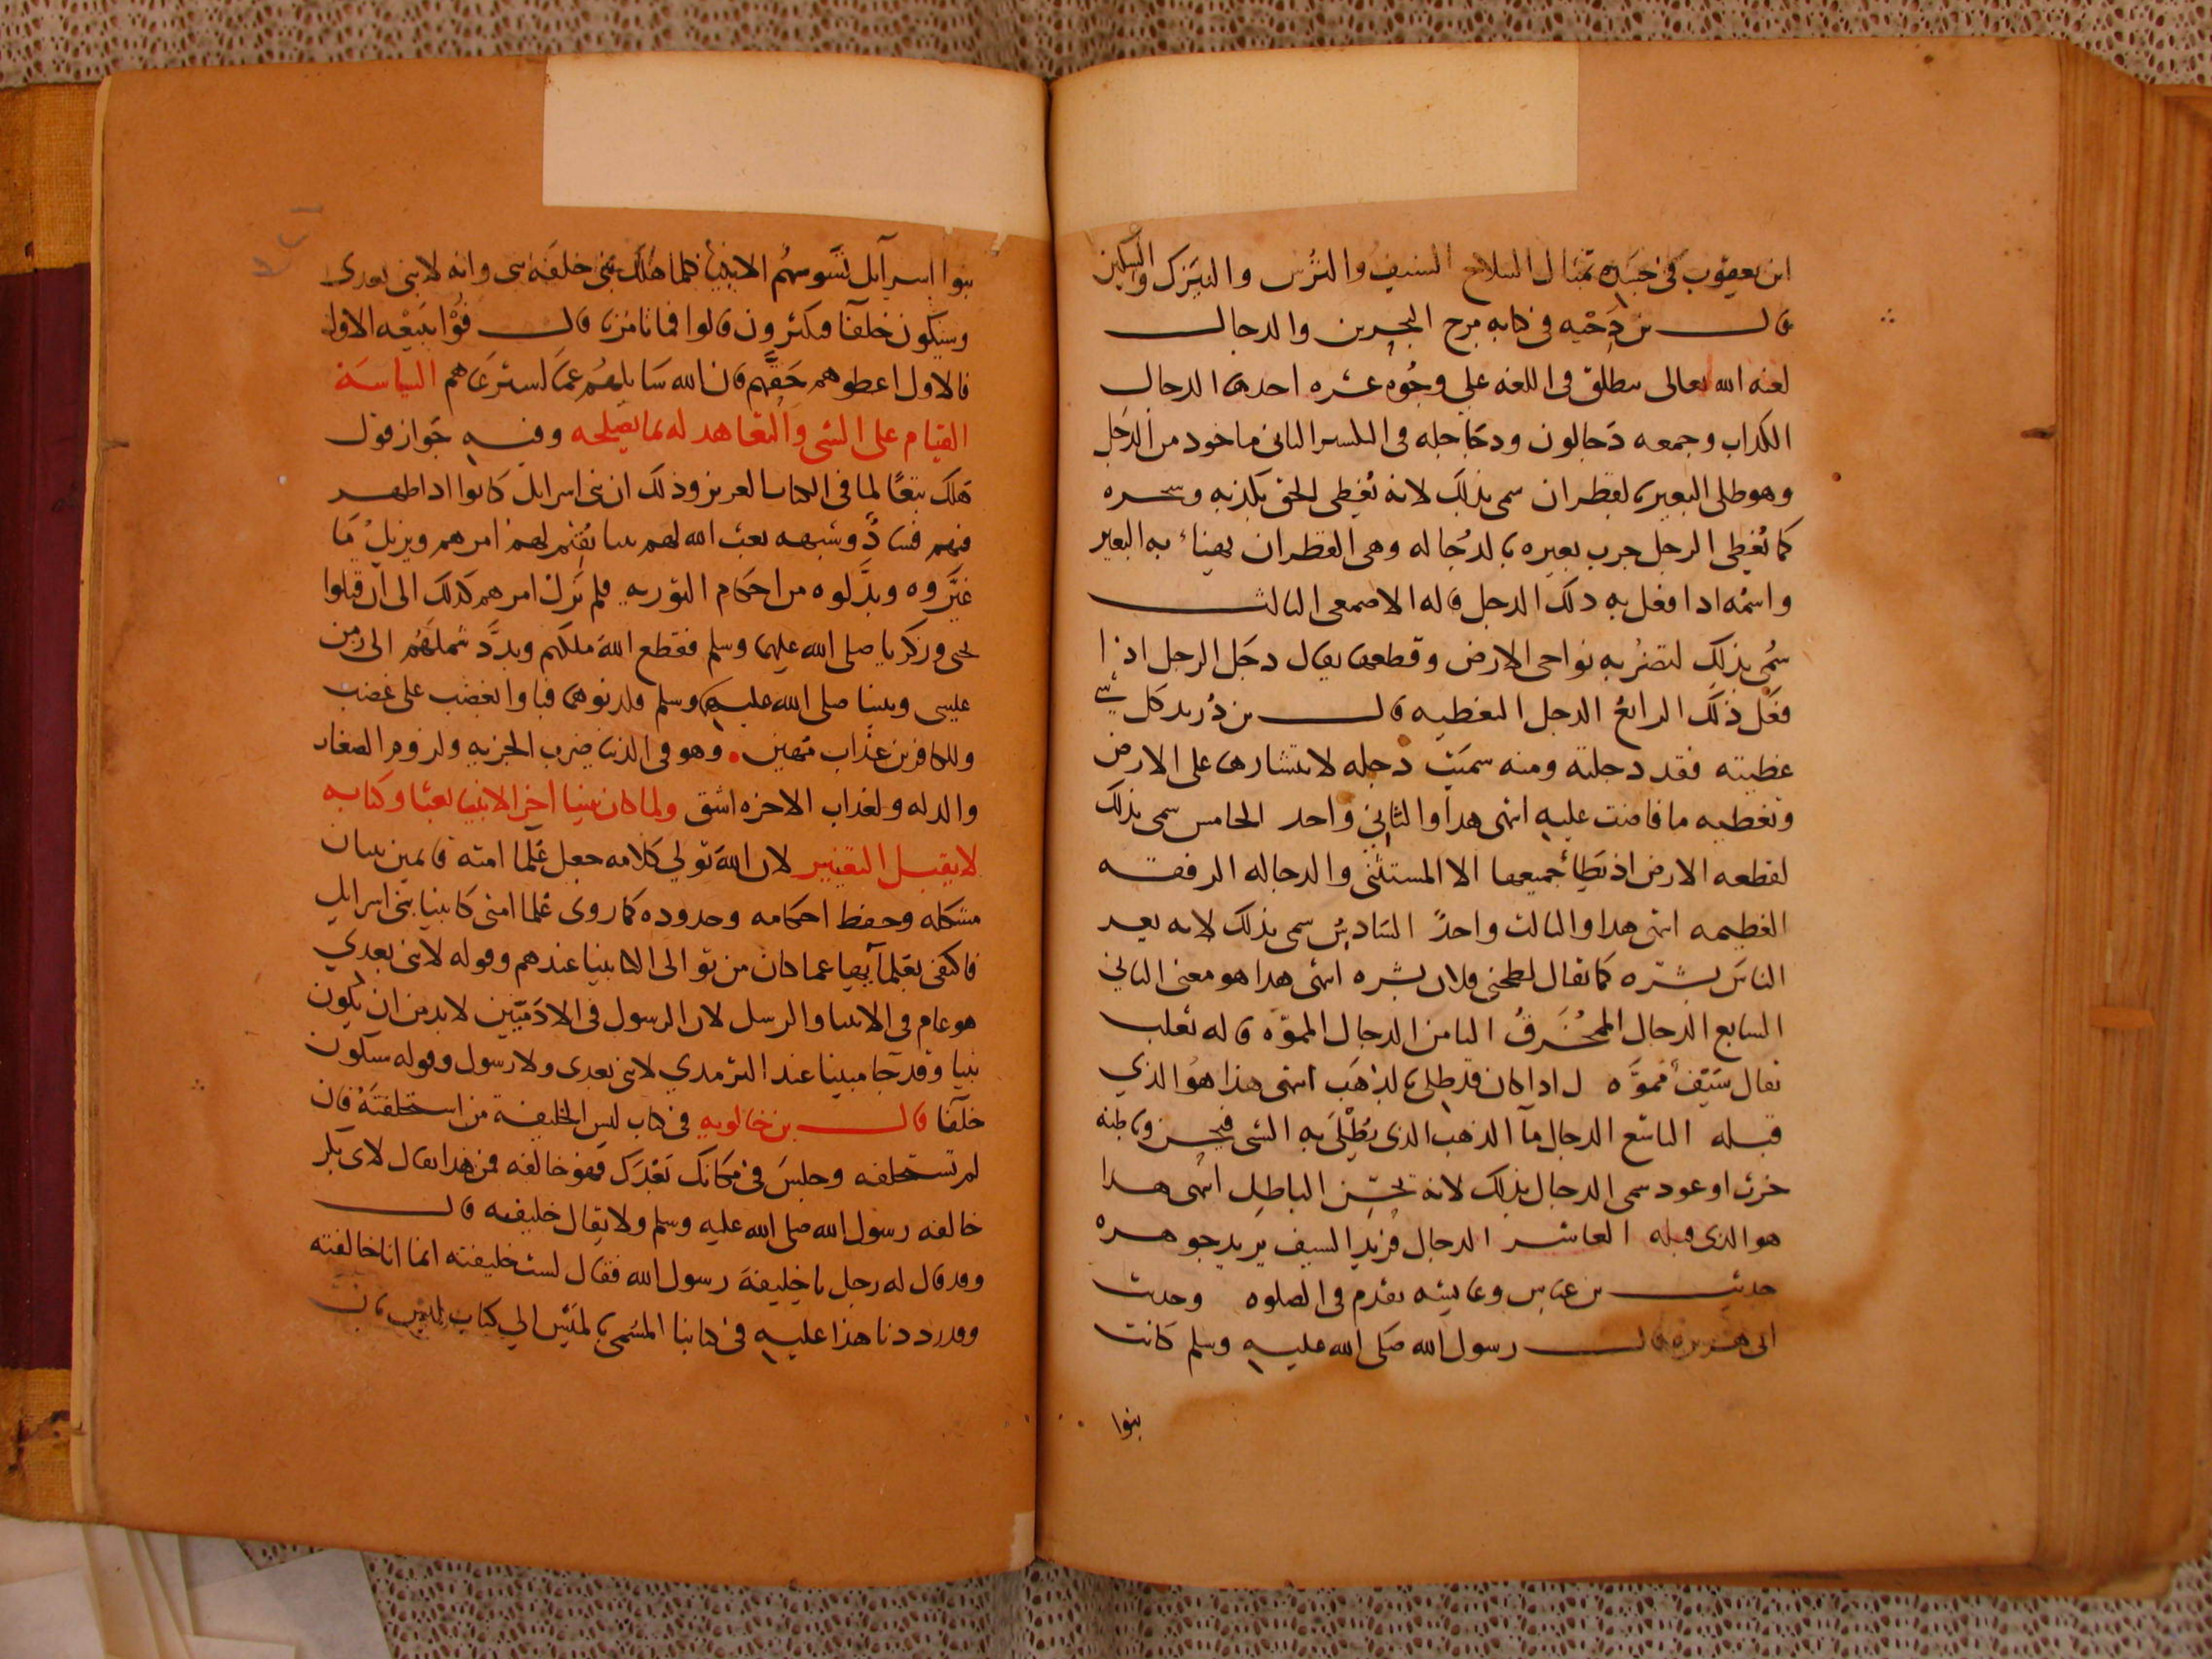 ابن يعقوب في جنبيه تمثال السلاح السيف والترس والنيزك والسكين
قال بن دحية في كتابه مرج البحرين والدجال
لعنه الله تعالى يطلق في اللغة على وجوه عشره احدها الدجال
الكذاب وجمعه دجالون ودجاجله الثاني ماخود من الدجل
وهو طلى البعير بالقطران سمى بذلك لانه يغطى الحق بكذبه وسحره
كما يغطى الرجل جرب بعيره بالدجاله وهى القطران يهنأ به البعير
واسمه ادا فعل به دلك الدجل قاله الاصمعى الثالث
سمى بذلك لضربه نواحى الارض وقطعها يقال دجل الرجل اذا
فعل ذلك الرابع الدجل التغطيه قال بن دريد كل شي
غطيته فقد دجلته ومنه سميت دجله لانتشارها على الارض
وتغطيه ما فاضت عليه انتهى هدا والثاني واحد الخامس سمى بذلك
لقطعه الارض اذ يطأ جميعها الا المستثنى والدجاله الرفقه
العظيمه انتهى هدا والثالث واحد السادس سمى بذلك لانه يعر
الناس بشره كما يقال لطخنى فلان بشره انتهى هدا هو معنى الثاني
السابع الدجال المخرق الثامن الدجال المموه قاله ثعلب
يقال سيف مموه اداكان قد طلى بالذهب انتهى هذا هو الذي
قبله التاسع الدجال مآ الذهب الذى يطلى به الشى فيحسن وباطنه
خزف او عود سمى الدجال بذلك لانه يحسن الباطل انتهى هدا
هو الذى قبله العاشر الدجال فرند السيف يريد جوهره
حديث بن عباس وعايشه تقدم فى الصلوه وحديث
ابى هريره قال رسول الله صلى الله عليه وسلم كانت
بنوا
بنوا اسرآيل تسوسهم الانبيأ كلما هلك نبى خلفه نبى وانه لا نبى بعدى
وسيكون خلفآ فيكثرون قالوا فما تامرنا قال فوا ببيعه الاول
فالاول اعطوهم حقهم فان الله سايلهم عما استرعاهم السياسة
القيام على الشى والتعاهد له بما يصلحه وفيه جواز قول
هلك تبعا لما فى الكتاب العزيز وذلك ان بنى اسرايل كانوا ادا ظهر
فيهم فساد وشبهه بعث الله لهم نبيا يقيم لهم امرهم ويزيل ما
غيروه وبدلوه من احكام التوريه فلم يزل امرهم كذلك الى ان قتلوا
يحى وزكريا صلى الله عليهما وسلم فقطع الله ملكهم وبدد شملهم الى زمن
عليسى ونبينا صلى الله عليهما وسلم فباوا بغضب على غضب
وللكافرين عذاب مهين وهو فى الدنيا ضرب الجزيه ولزوم الصغار
والدله ولعذاب الاخره اشق ولما كان نبينا اخر الانبيا بعثا وكتابه
لا يقبل التغيير لان الله تولى كلامه جعل علما امته قايمين ببيان
مشكله وحفظ احكامه وحدوده كما روى علما امتى كانبيا بنى اسرايل
فاكتفى بعلمايها عما كان من توالى الانبيا عندهم وقوله لا نبى بعدي
هو عام فى الانبيا والرسل لان الرسول فى الادميين لابد من ان يكون
نبيا وقد جا مبينا عند الترمدي لا نبى بعدى ولا رسول وقوله سيكون
خلفآ قال بن خالويه فى كتاب ليس الخليفة من استخلفته فان
لم تستخلفه وجلس فى مكانك بعدك فهو خالفه فمن هذا يقال لابى بكر
خالفه رسول الله صلى الله عليه وسلم ولا يقال خليفته قال
وقد قال له رجل يا خليفة رسول الله فقال لست خليفته انما انا خالفته
وقد رددنا هذا عليه فى كتابنا المسمى بالميس الي كتاب ليس